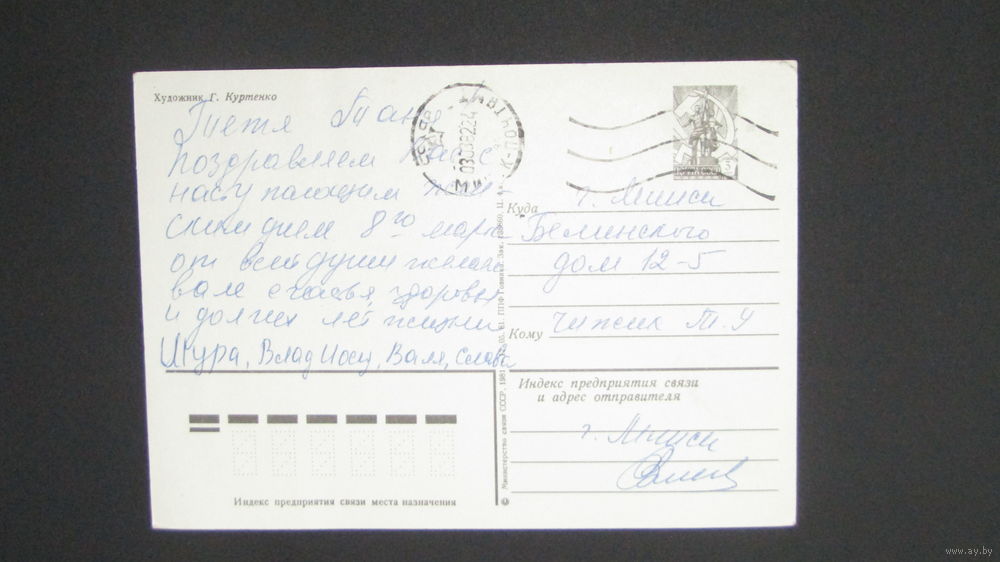 Художник Г. Куртенко
Тетя Таня
поздравляем Вас с
наступающим жен-
ским днем 8го марта
от всей души желаем
вам счастья, здоровья
и долгих лет жизни
Шура, Влад Иосу, Валя, Слава
ПОЧТА СССР
Куда
г. Минск
Белинского
дом 12-5
Кому Чижик Т. У
Индекс предприятия связи
и адрес отправителя
г. Минск
Индекс предприятия связи места назначения
Министерство связи СССР, 1981
www.ay.by